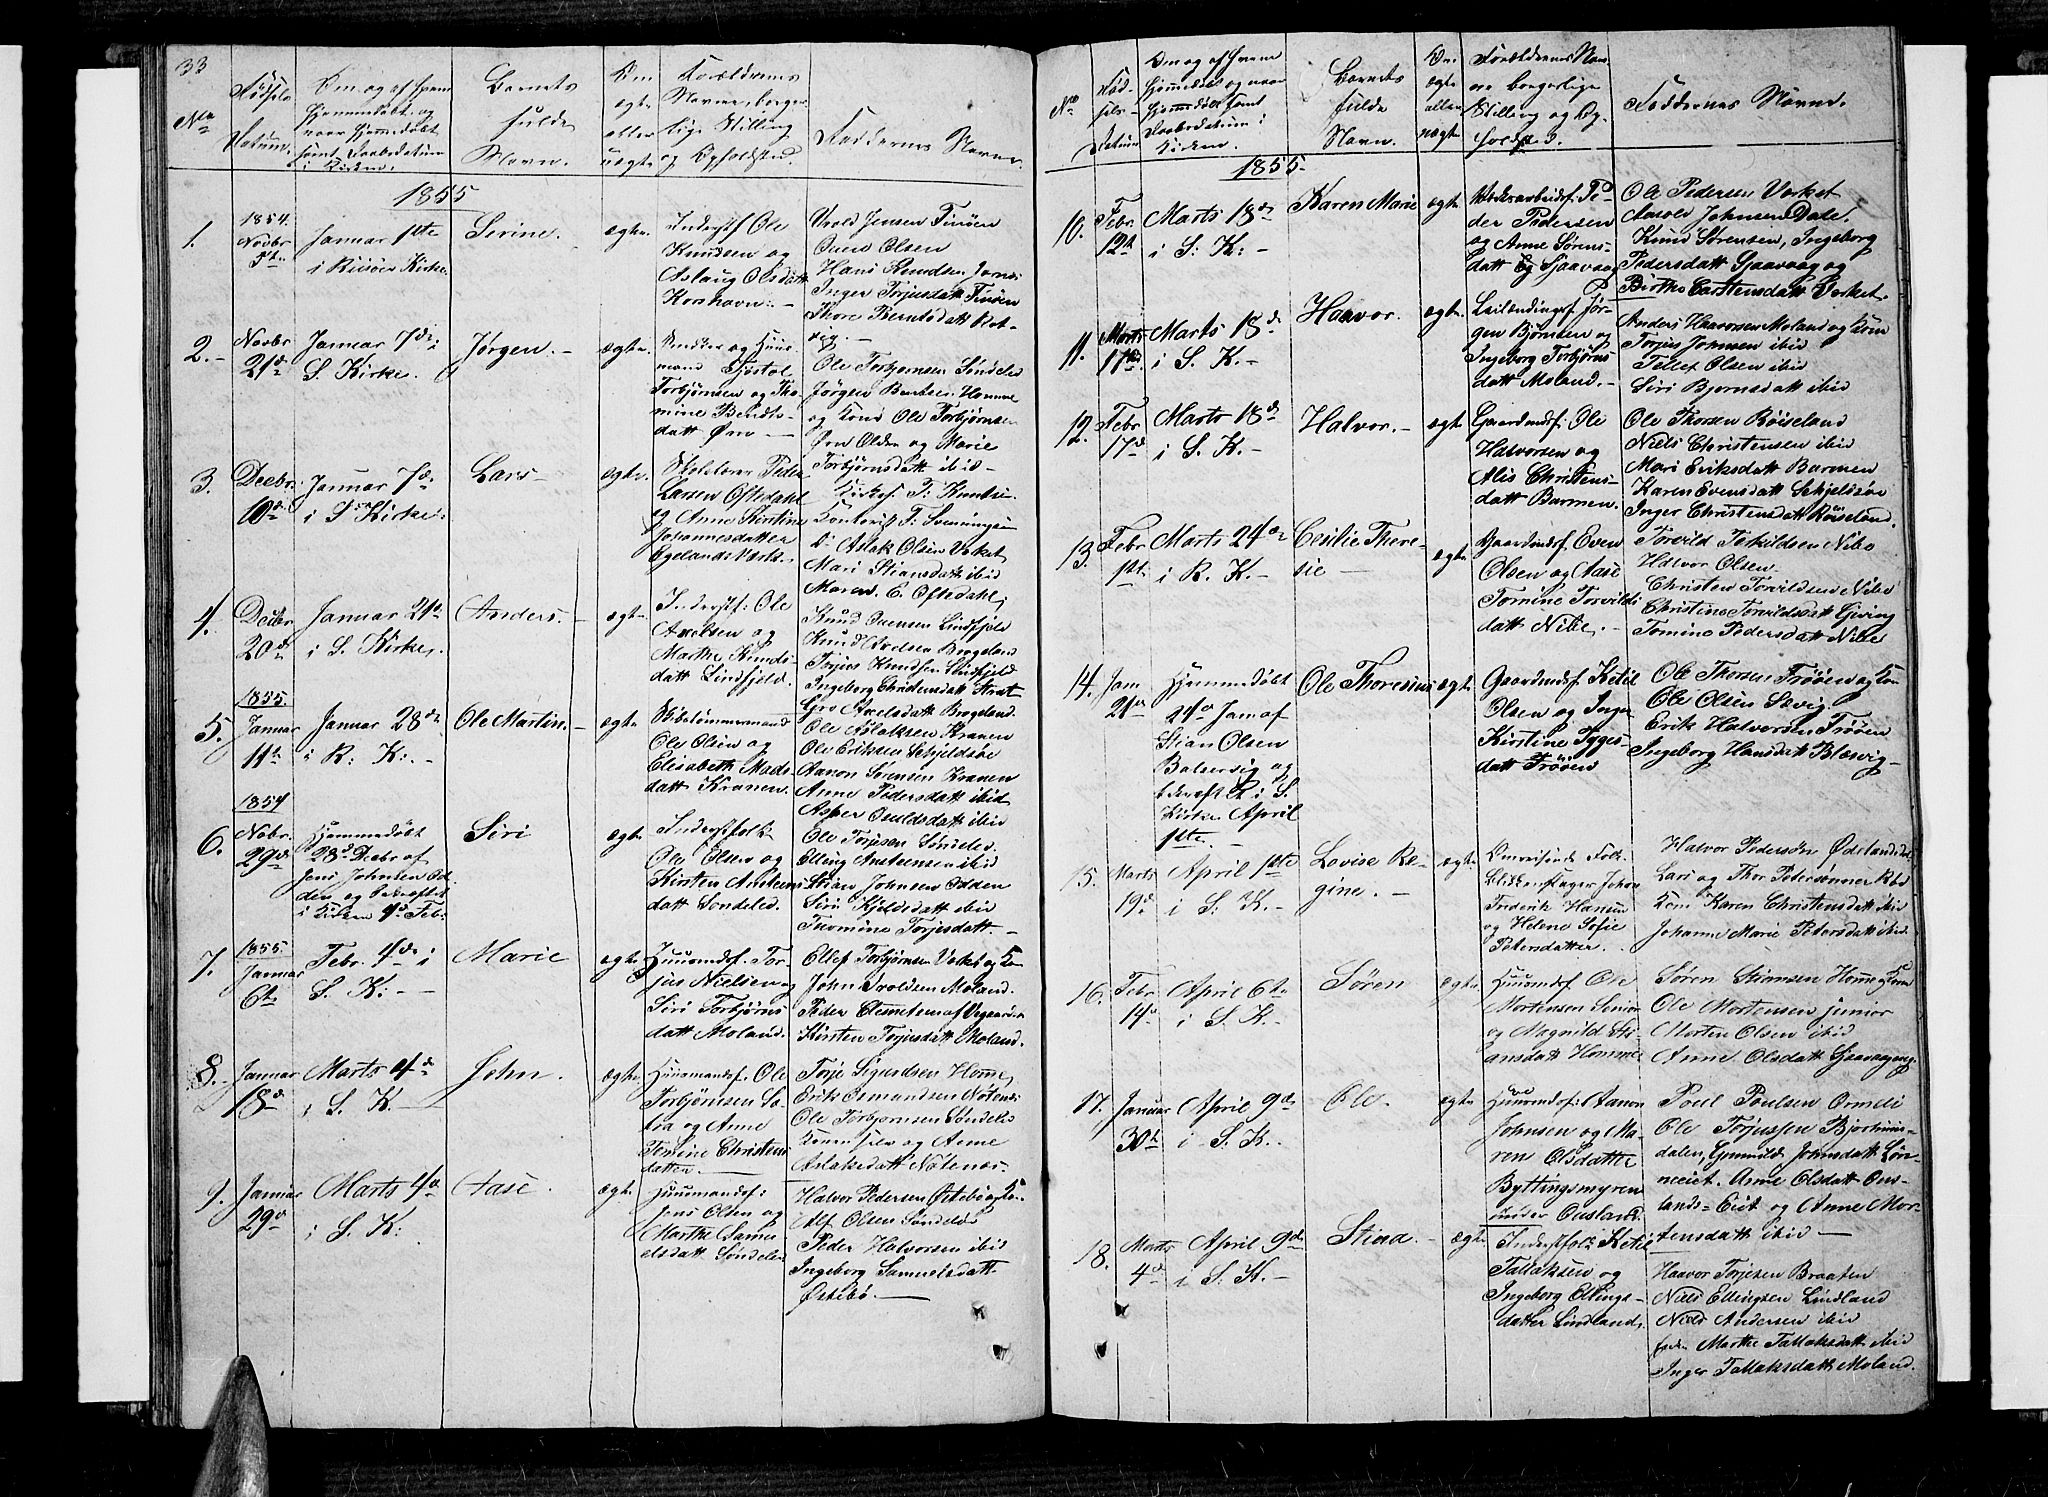 33
No
Fødsels
Datum.
Om og af hvem
hjemmedøbt og
naar hjemmedøbt
samt Daabsdatum
i Kirken.
Barnets
fulde
Navn.
Om
ægte
eller
uægte
Forældrenes
Navne, borger
lige Stilling
og Opholdsted.
Faddernes Navne
1855
1.
1854.
Novbr
5te
Januar 1ste
i Risøer Kirke.
Serine.
ægte.
Inderstf Ole
Knudsen og
Aslaug Olsdatt
Korshavn.
Jensen Finøen
Olsen
Hans Knudsen
Inger Torjusdatt Finøen
Thore Berntsdatt
2.
Novbr
21de
Januar 7de
S. Kirke.
Jørgen.
ægte.
og Huus
mand
Torbjørnsen og Tho
mine Bendts
datt Øen
Ole Torbjørnsen Søndeled
Jørgen Bentsen Homme
og Kone Ole Torbjørnsen
Øen Olsen og Marie
Torbjørnsdatt ibid
3.
Decbr
10de
Januar 7de
i S Kirke.
Lars
ægte.
Skolelærer Peder
Larsen Oftedahl
og Anne Kirstine
Johannesdatter
Egelands Værk.
Aslak Olsen Verket
Mari Stiansdatt ibid
Maren E. Oftedahl
4.
Decbr
20de
Januar 21de
i S. Kirke.
Anders.
ægte
Inderstf: Ole
Axelsen og
Marthe Knuds-
datt Lindfjeld.
Knud Lindfjeld
Knud Axelsen Brogeland
Torjus Knudsen Lindfjeld
Ingeborg Christensdatt
Gro Axelsdatt Brogeland
5.
1855.
Januar
11te
Januar 28de
i R: K:
Ole Martin.
ægte
Skibstømmermand
Ole Olsen og
Elisabeth Mads-
datt Kranen.
Ole Aslaksen Kranen
Ole Eriksen Schjeldsøe
Aanon Sørensen Kranen
Anne Pedersdatt ibid
Asper Osuldsdatt ibid
6.
1854
Nobr.
29de
Hjemmedøbt
28de Decbr af
Jens Johnsen
og bekræftet
i Kirken 4de Feb:
Siri
ægte
Inderstfolk
Ole Olsen og
Kirsten
datt Søndeled.
Ole Torjusen Søndeled.
Elling ibid
Stian Johnsen
Siri Kjeldsdatt ibid
Thomine Torjesdatt
7.
1855.
Januar
6te
Febr. 4de i
S. K:
Marie
ægte
Huusmdsf. Tor-
jus Nielsen og
Siri Torbjørns
datt Moland.
Ellef Torbjørnsen og Kone
John Moland.
Peder
Kirsten Torjusdatt Moland.
8.
Januar
18de
Marts 4de
i S. K.
John.
ægte
Huusmandsf. Ole
Torbjørnsen
og Anne
Christens
datter
Torje Sigurdsen Homme
Erik Osmundsen
Ole Torbjørnsen Søndeled
og Anne
Aslaksdatt
9.
Januar
29de
Marts 4de
i S. K:
Aase.
ægte
Huusmandsf:
Jens Olsen og
Marthe Samu
elsdatt Søndeled
Halvor Pedersen Østebø og Ko
Alf Olsen Søndeled
Peder Halvorsen ibid
Ingeborg Samuelsdatt
Østebø.
No
Fød-
sels-
Datum
Om og af hvem
hjemmedøbt og naar
hjemmedøbt samt
Daabsdatum i
Kirken.
Barnets
fulde
Navn.
Om
ægte
eller
uægte
Forældrenes Nav
ne borgerlige
Stilling og Op
holdsted.
Faddernes Navne.
1855.
10.
Febr
12te
Marts 18de
i S: K:
Karen Marie
ægte
Pe-
der Pedersen
og Anne Sørens-
datt
Ole Pedersen Verket
Johnsen Dale
Knud Sørensen, Ingeborg
Pedersdatt og
Birthe Carstensdatt Verket.
11.
Marts
Marts 18de
i S. K.
Haavor.
ægte
Leilændingsf. Jør
gen Bjørnsen og
Ingeborg Torbjørns
datt Moland.
Anders Haavorsen Moland og Kone
Torjus Johnsen ibid
Tellef Olsen ibid
Siri Bjørnsdatt ibid
12.
Febr
17de
Marts 18de
i S. K.
Halvor.
ægte
Gaardmdsf: Ole
Halvorsen og
Alis Christens-
datt Barmen.
Ole Thorsen Røiseland
Niels Christensen ibid
Mari Eriksdatt Barmen
Karen Evensdatt Schjeldsøe
Inger Christensdatt Røiseland.
13.
Febr
1ste
Marts 24de
i R. K.
Cecilie There-
sie
ægte
Gaardmdsf. Even
Olsen og Aase
Tomine Torvilds
datt Nibe.
Torvild Terkildsen Nibe
Halvor Olsen
Christen Torvildsen Nibe
Christine Torvildsdatt Gjeving
Tomine Pedersdatt Nibe
14.
Jan
21de
Hjemmedøbt
24de Jan af
Stian Olsen
Bolservig og
bekræftet i S.
Kirke April
1ste.
Ole Thoresius
ægte
Gaardmdsf. Ketil
Olsen og Inger
Kirstine Tyges-
datt Trøen
Ole Thorsen Trøen og Kone
Ole Olsen Sevig
Erik Halvorsen Trøen
Ingeborg Hansdatt Blesvig
15.
Marts
19de
April 1ste
i S: K.
Lovise Re-
gine.
ægte
Omreisende Folk
Blikkenslager Johan
Frederik Hansen
og Helene Sofie
Petersdatter.
Halvor Pedersen Ødelandsdal
Lars og Thor Pedersønner ibid
Kone Karen Christensdatt ibid
Johanne Marie Petersdatt ibid
16.
Febr
14de
April 6te
i S. K.
Søren
ægte
Huusmdsf. Ole
Mortensen Senior
og Magnild Sti-
ansdatt Homme
Søren Stiansen Homme og Kone
Ole Mortensen junior
Morten Olsen ibid
Anne Olsdatt
17.
Januar
30te
April 9de
i S. K.
Ole.
ægte
Huusmdsf: Aanon
Johnsen og Ma-
ren Olsdatter
Byttingsmyren
under Ousland.
Poul Poulsen
Ole Torjussen
dalen, Gunnild Johnsdatt
Anne Olsdatt Ous-
lands-Eiet og Anne Mor-
tensdatt ibid
18.
Marts
4de
April 9de
i S: K.
Stina.
ægte
Inderstfolk Ketil
Tallaksen og
Ingeborg Ellings-
datter Lindland.
Haavor Torjesen Braaten
Niels Ellingsen Lindland
Niels Andersen ibid
Marthe Tallaksdatt ibid
Inger Tallaksdatt Moland.